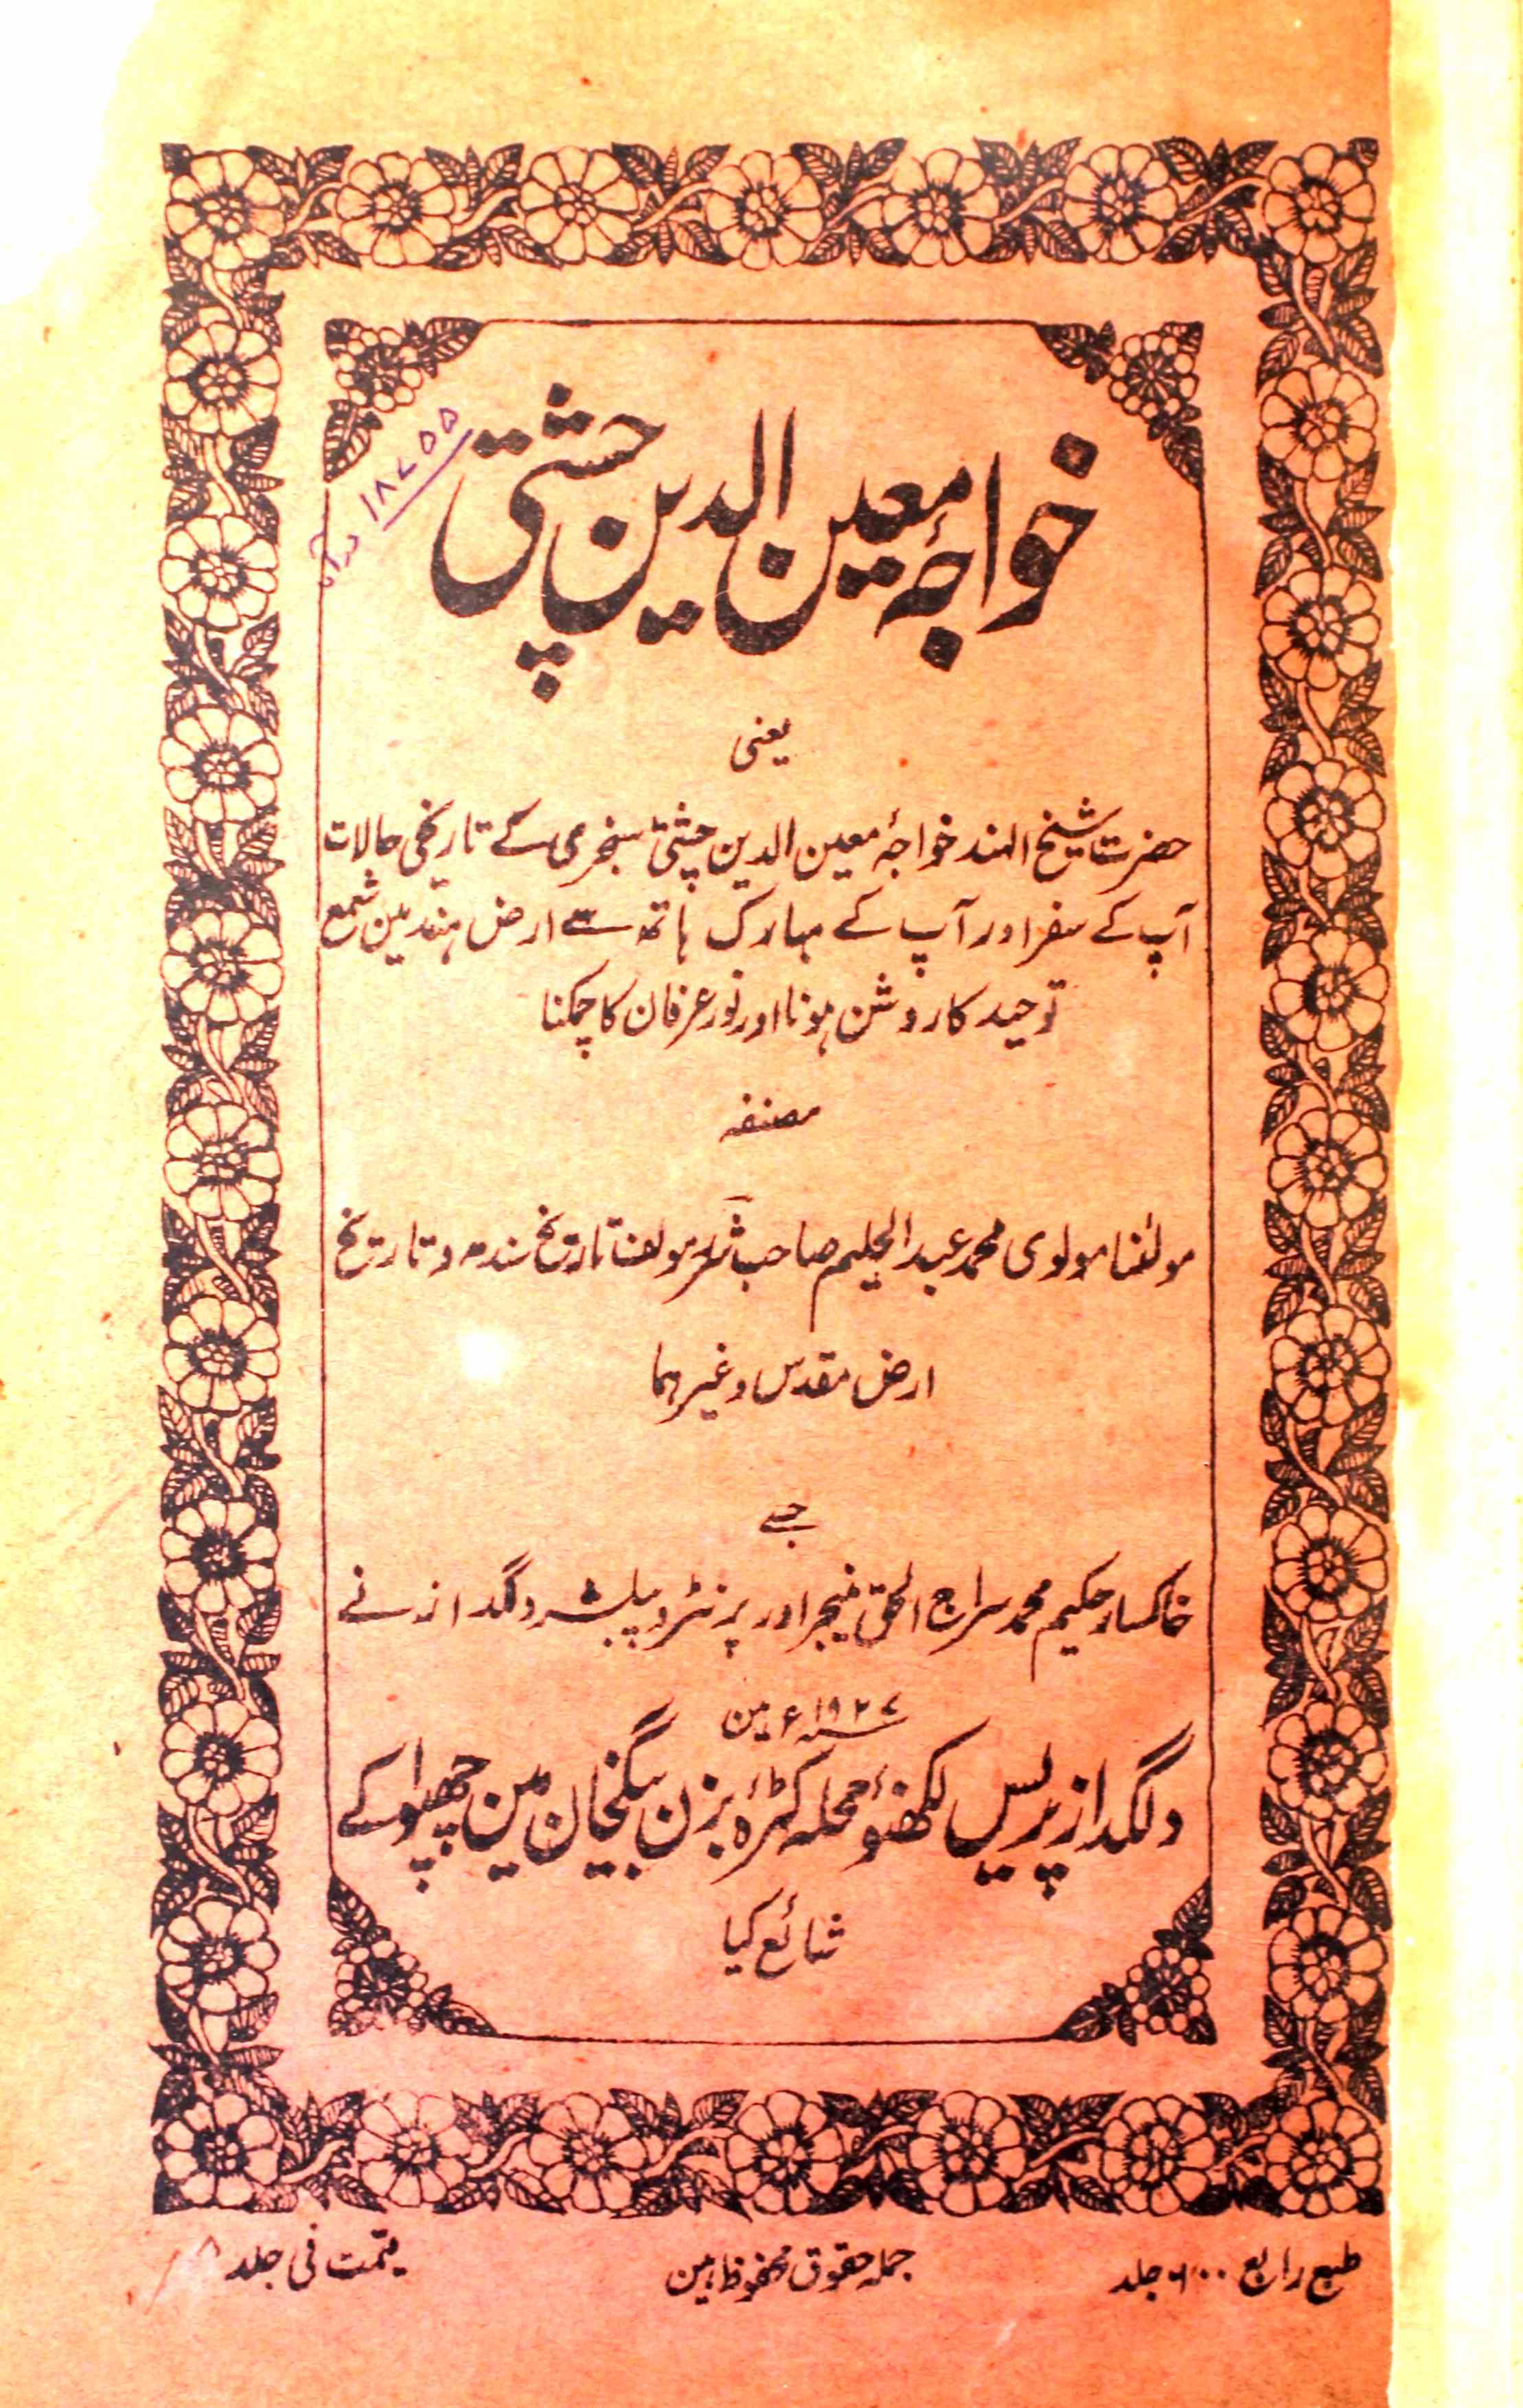 خواجۂ معین الدین چشتی
۱۸۷۵۵
یعنی
حضرت شیخ الہند خواجۂ معین الدین چشتی سنجری کے تاریخی حالات
آپ کے سفر اور آپ کے مبارک ہاتھ سے ارض ہند مین شمع
توحید کا روشن ہونا اور نور عرفان کا چمکنا
مصنفہ
مولٰنا مولوی محمد عبد الحلیم صاحب شرر مولف تاریخ سندھ و تاریخ
ارض مقدس وغیرہما
جسے
خاکسار حکیم محمد سراج الحق منیجر اور پرنٹر و پبلشر دلگداز نے
۱۹۲۷ء مین
دلگداز پریس لکھنؤ محلہ کٹرۂ بزن بیگ خان مین چھپوا کے
شائع کیا
طبع رابع ۶۰۰ جلد
جملہ حقوق محفوظ ہین
قیمت فی جلد